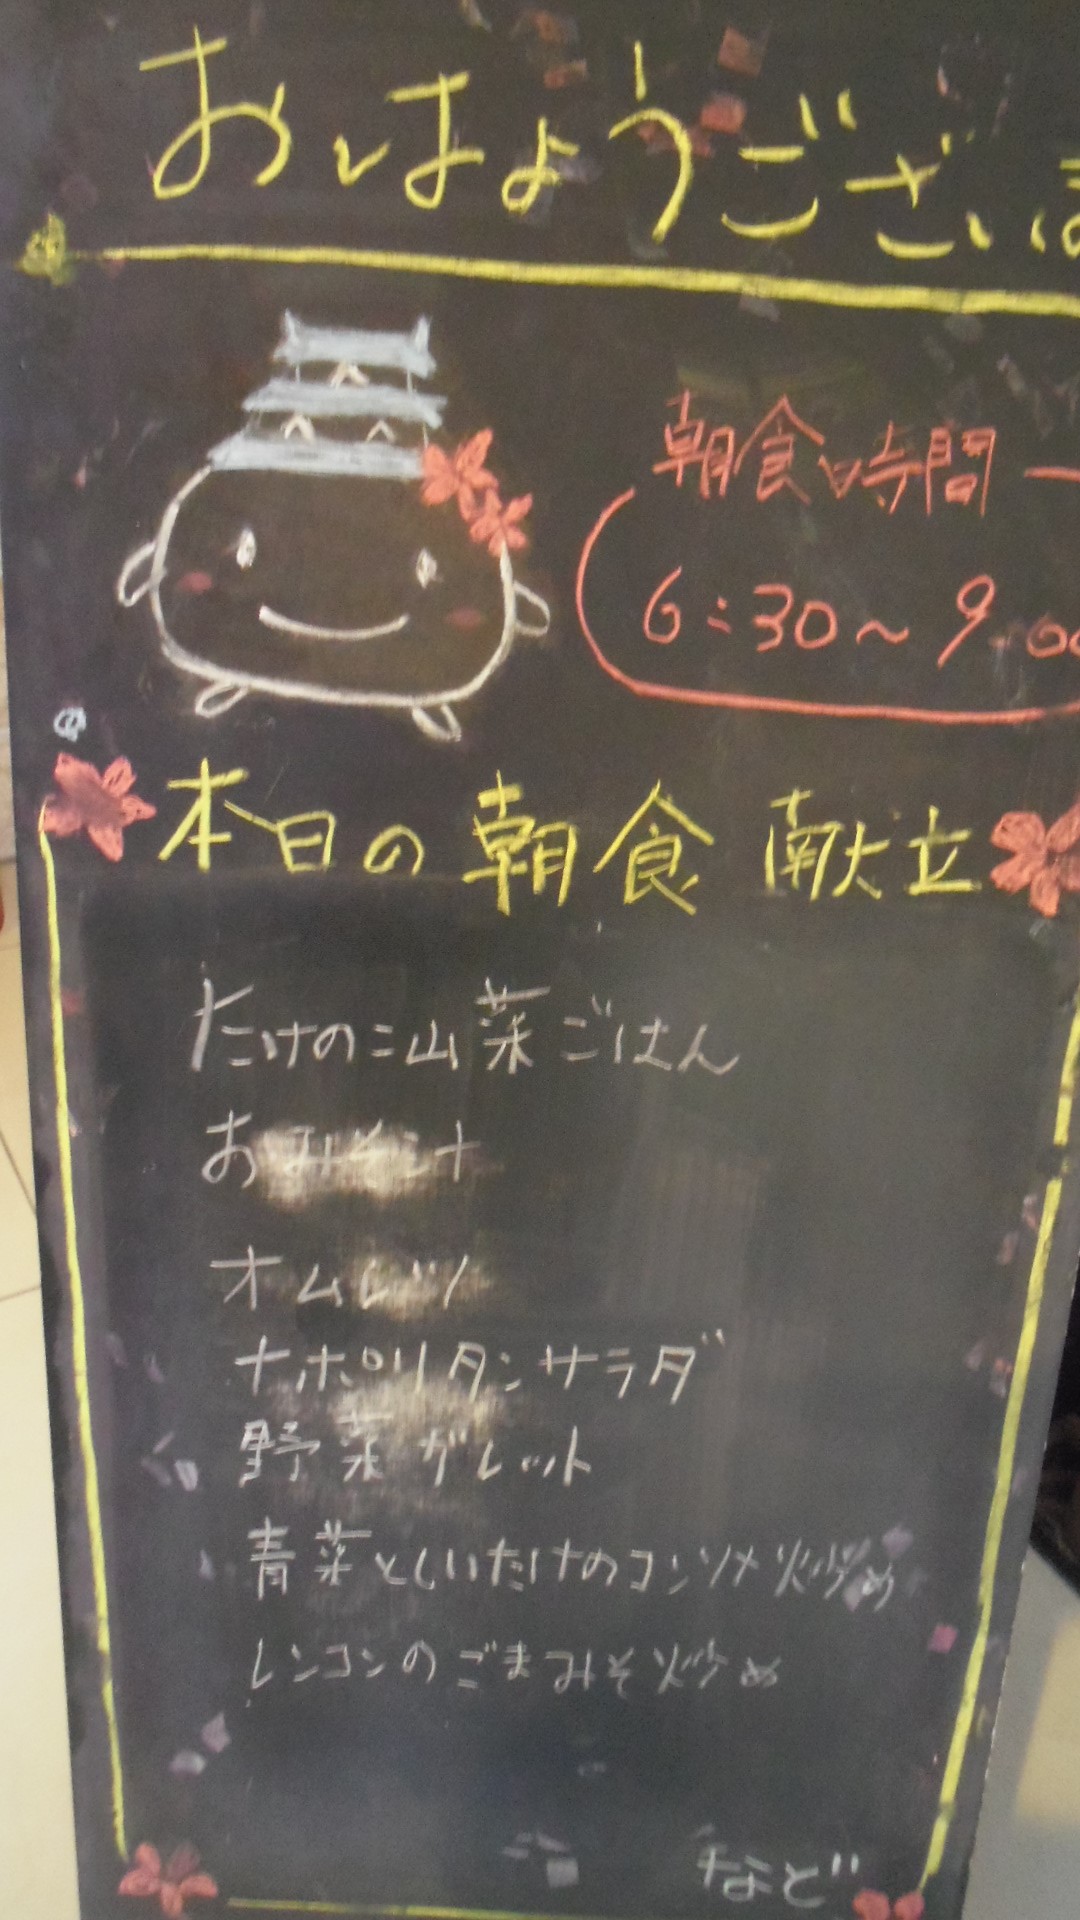 おはようございま
朝食時間
6:30～9:00
本日の朝食献立
たけのこ山菜ごはん
おみそ汁
オムレツ
ナポリタンサラダ
野菜ガレット
青菜としいたけのコンソメ炒め
レンコンのごまみそ炒め
などﾞ